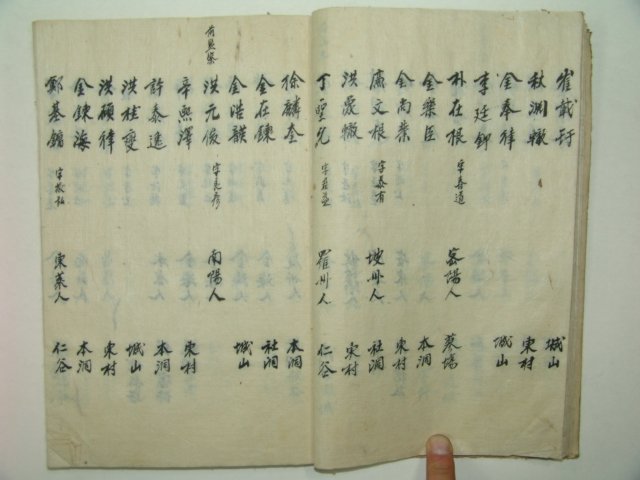 崔載 城山
秋淵轍 東村
金奉律 城山
李廷鉀
朴在根 字春道 密陽人 萊場
金樂臣 本洞
金尚業 東村
盧文根 字 有 坡州人 社洞
洪晟轍 東村
丁 字 羅州人 仁谷
徐麟奎 本洞
金在鍊 社洞
金浩韻 城山
洪元俊 字 彦 南陽人
辛熙澤 東村
許泰逸 本洞
洪 燮 城山
洪碩律 東村
金鍊海 本洞
鄭基 字 東萊人 仁谷